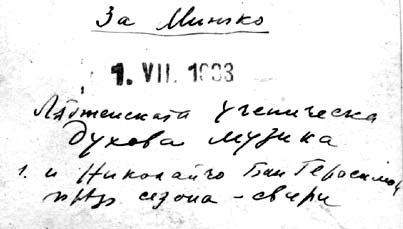 За Минчо
1. VII. 1933
ученическа
Духова музика
1. и Николайчо Бай Герасимов
сезона - свири